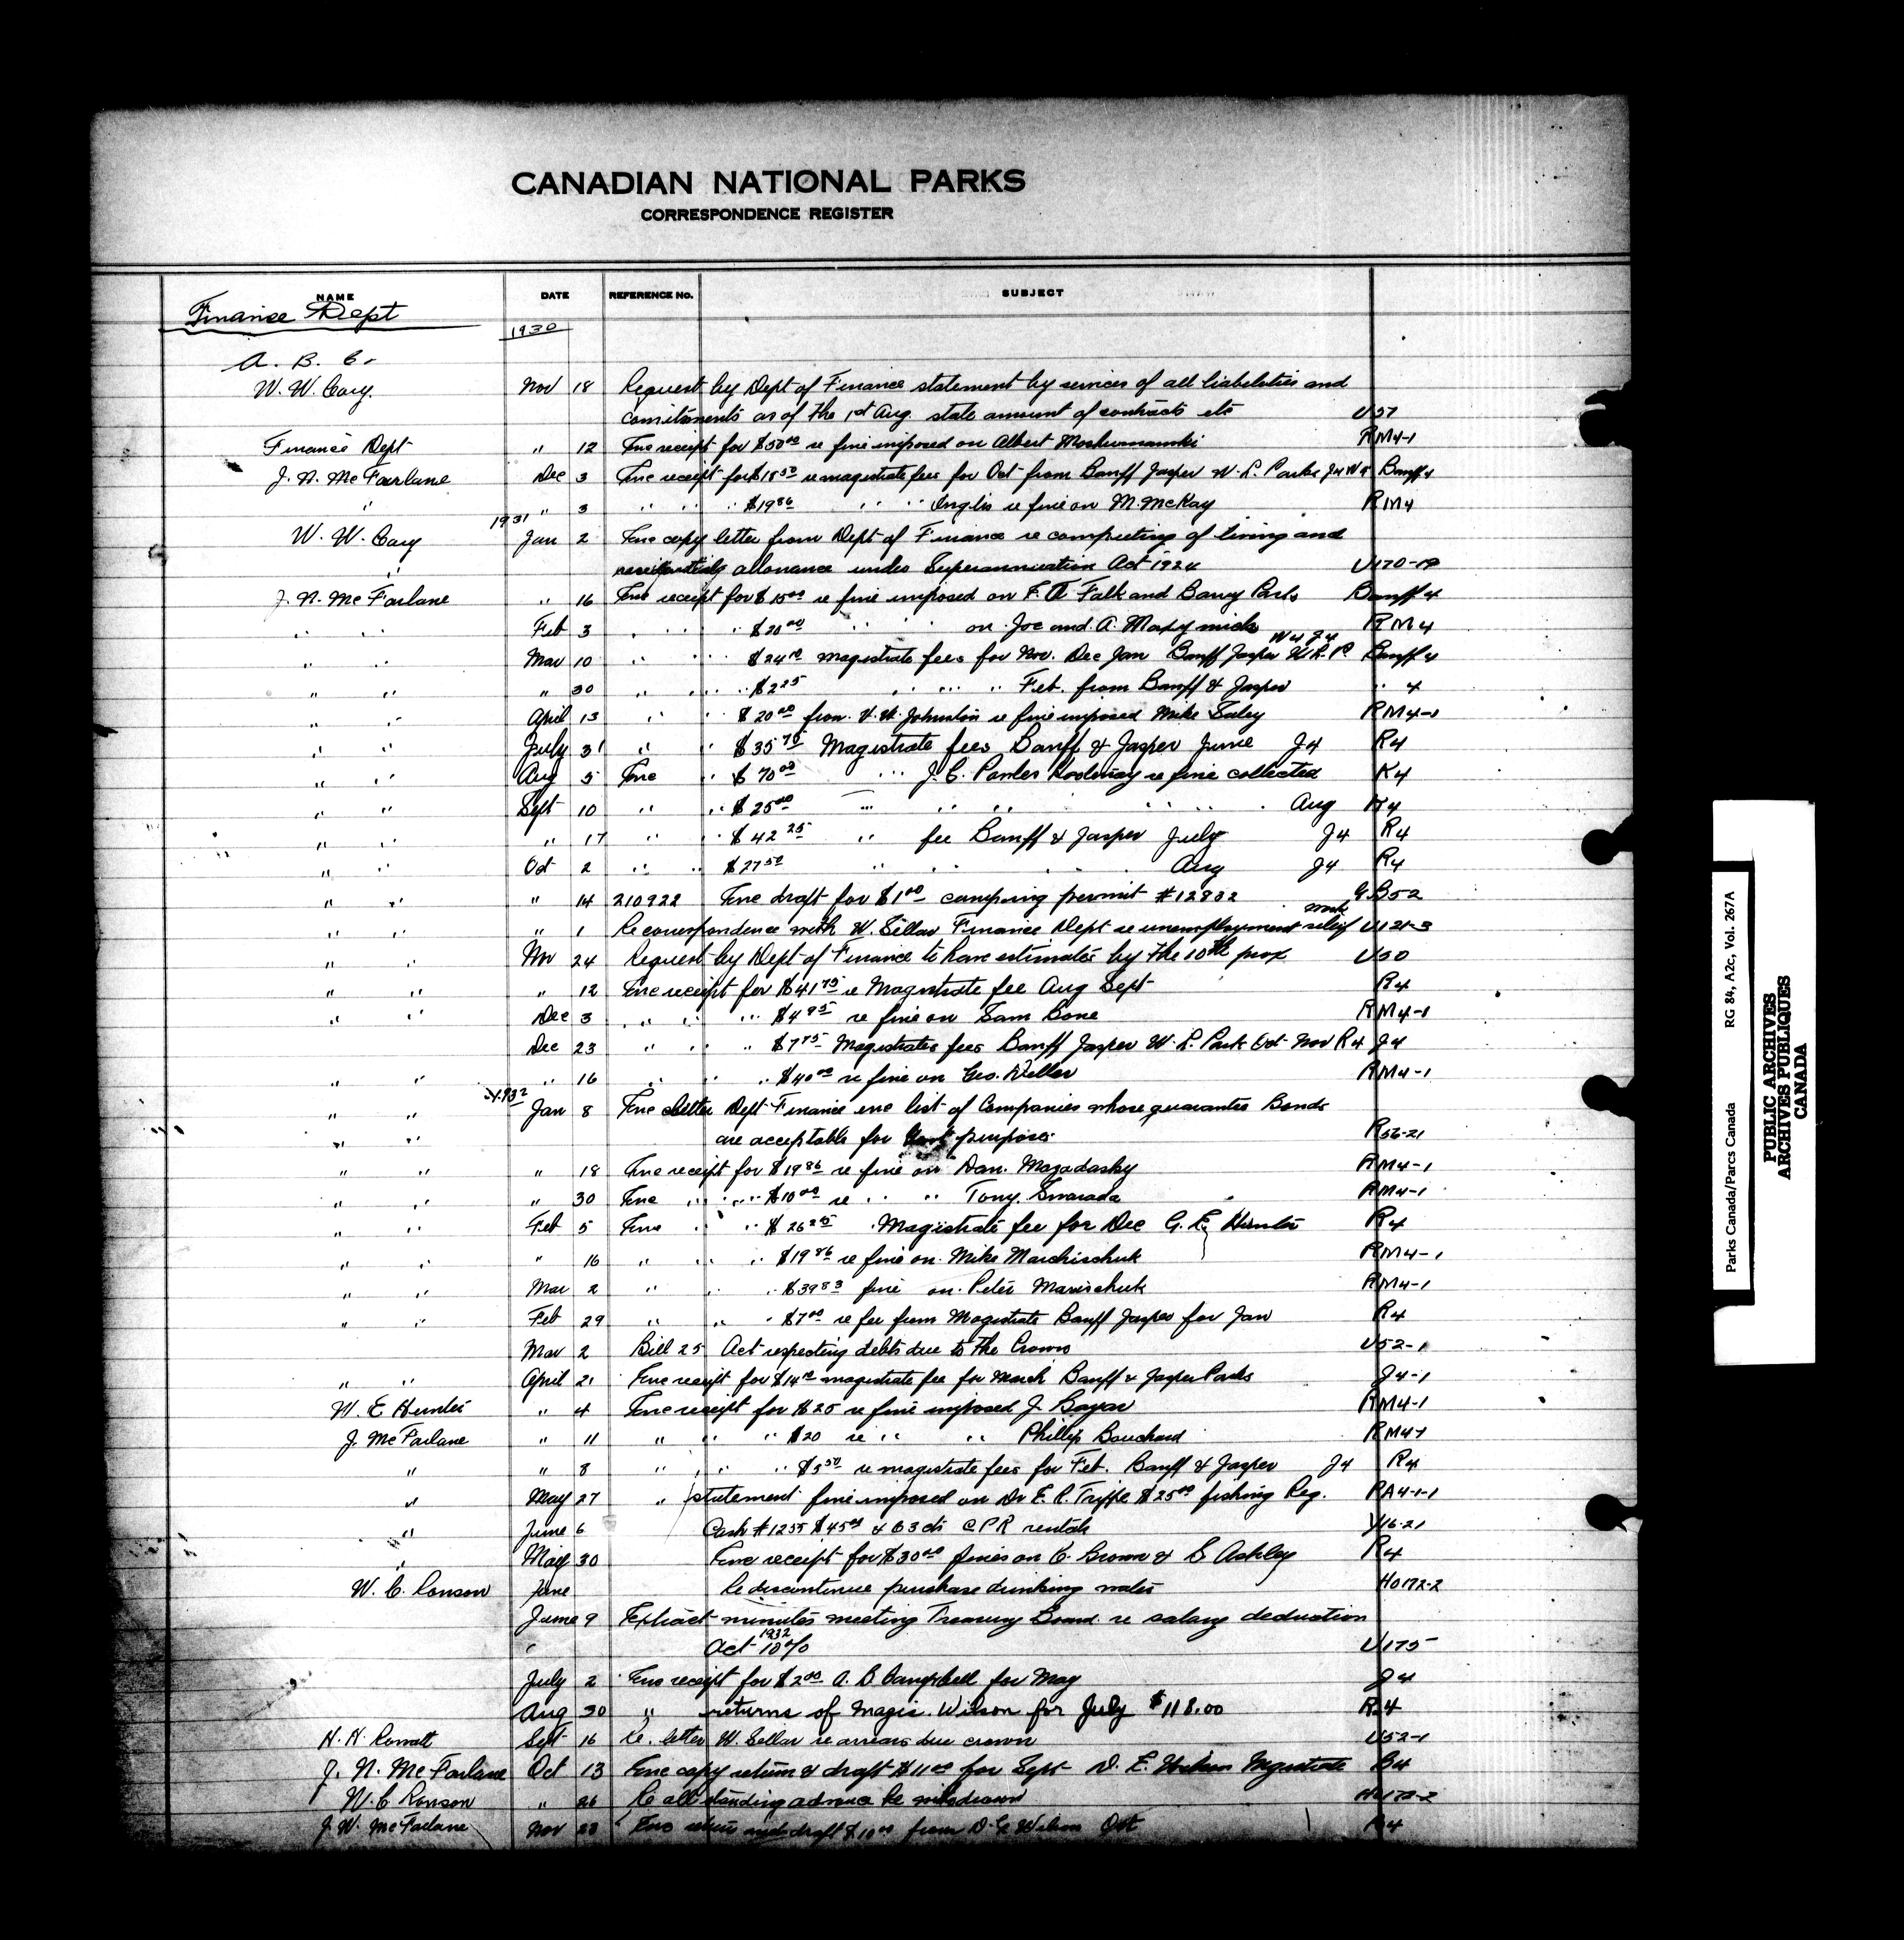 CANADIAN NATIONAL PARKS
CORRESPONDENCE REGISTER
NAME DATE REFERENCE No. SUBJECT
Finance Dept
1930
A. B. C.
W. W. Cory. Nov 18 Request by Dept of Finance statement by services of all liabilities and
comitments as of the 1st Aug. state amount of contracts etc U57
Finance Dept " 12 Enc receipt for $50.00 re fine imposed on Albert RM4-1
J. N. McFarlane Dec 3 Enc receipt for $18.50 re magistrate fees for Oct from Banff Jasper W. L. Parks J4 W4 Banff 4
" " 3 " " " $19.86 " " " Inglis re fine on M. McKay RM4
1931
W. W. Cory Jan 2 Enc copy letter from Dept of Finance re computing of living and
" allowance under Superannuation Act 1924 U170-19
J. N. McFarlane " 16 Enc receipt for $15.00 re fine imposed on F. A Falk and Barry Parks Banff 4
" " Feb 3 " " " $20.00 " " " on Joe and A. RM4
W4 J4
" " Mar 10 " " " $24.10 magistrate fees for Nov. Dec Jan Banff Jasper W. L. P. Banff 4
" " " 30 " " " $2.25 " " " Feb. from Banff & Jasper " 4
" " April 13 " " $20.00 from V. H. Johnston re fine imposed Mike Saley RM4-1
" " July 31 " " $35.75 Magistrate fees Banff & Jasper June J4 R4
" " Aug 5 Enc " $70.00 " J. C. re fine collected K4
" " Sept 10 " " $25.00 " " " " " Aug K4
" " " 17 " " $42.25 " fee Banff & Jasper July J4 R4
" " Oct 2 " " $27.50 " " " Aug J4 R4
" " " 14 210922 Enc draft for $1.00 camping permit #12802 G.B52
work
" " " 1 Re correspondence with W. Sellar Finance Dept re unemployment relief U121-3
" " Nov 24 Request by Dept of Finance to have estimates by the 10th prox U50
" " " 12 Enc receipt for $41.75 re Magistrate fee Aug Sept R4
" " Dec 3 " " " $4.95 re fine on Sam Bone RM4-1
Dec 23 " " " $7.75 Magistrates fees Banff Jasper W. L. Park Oct Nov R4 J4
" " " 16 " " " $40.00 re fine on Geo. Weller RM4-1
1932
" " Jan 8 Enc letter Dept Finance enc list of Companies whose guarantee Bonds
" " are acceptable for Govt purposes R56-21
" " " 18 Enc receipt for $19.86 re fine on Dan. RM4-1
" " " 30 Enc " " " $10.00 re " " Tony RM4-1
" " Feb 5 Enc " " $26.25 Magistrate fee for Dec G. E. Hunter R4
" " " 16 " " " $19.86 re fine on Mike RM4-1
" " Mar 2 " " " $39.83 fine on Peter RM4-1
" " Feb 29 " " " $7.00 re fee from Magistrate Banff Jasper for Jan R4
Mar 2 Bill 25 Act respecting debts due to the Crown U52-1
" " April 21 Enc receipt for $14.10 magistrate fee for March Banff & Jasper Parks J4-1
W. E Hunter " 4 Enc receipt for $25 re fine imposed J. RM4-1
J. McFarlane " 11 " " " $20 re " " Phillip Bouchard RM4-1
" " 8 " " " $5.50 re magistrate fees for Feb. Banff & Jasper J4 R4
" May 27 " statement fine imposed on Dr E. R. $25.00 fishing Reg. PA4-1-1
" June 6 Cash #1255 $45.00 & 63 cts C P R rentals Y16-21
" May 30 Enc receipt for $30.00 fines on C. Brown & S Ashley R4
W. C. Ronson June Re discontinue purchase drinking water HO172-2
June 9 Extract minutes meeting Treasury Board re salary deduction
1932
" Act 10% U175
July 2 Enc receipt for $2.00 A. B Campbell for May J4
Aug 30 " returns of Magis. Wilson for July $118.00 R4
H. H. Rowatt Sept 16 Re. letter W. Sellar re arrears due crown U52-1
J. N. McFarlane Oct 13 Enc copy return & draft $11.00 for Sept Magistrate B4
W. C Ronson " 26 Re all standing advance be withdrawn HO172-2
J. W. McFarlane Nov 23 Enc return and draft $10.00 from D. G Wilson Oct 4
Parks Canada/Parcs Canada RG 84, A2c, Vol. 267A
PUBLIC ARCHIVES
ARCHIVES PUBLIQUES
CANADA